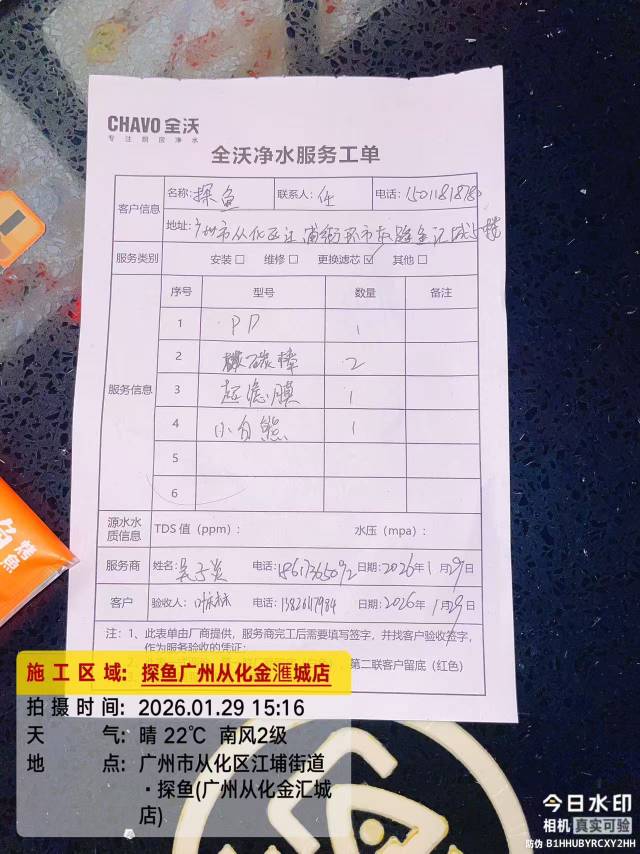 CHAVO 全沃
专注厨房净水
全沃净水服务工单
客户信息
名称: 探鱼 联系人: 任 电话: 15011818780
地址: 广州市从化区江埔街环市东路金汇城5楼
服务类别 安装□ 维修□ 更换滤芯☑ 其他□
服务信息
序号 型号 数量 备注
1 PD 1
2 碳棒 2
3 超滤膜 1
4 小白熊 1
5
6
源水水质信息 TDS 值（ppm）: 水压（mpa）:
服务商 姓名: 电话: 18617365092 日期: 2026年1月29日
客户 验收人: 电话: 13826117984 日期: 2026年1月29日
注：1、此表单由厂商提供，服务商完工后需要填写签字，并找客户验收签字，
作为服务验收的凭证;
第二联客户留底（红色）
施工区域: 探鱼广州从化金滙城店
拍摄时间: 2026.01.29 15:16
天 气: 晴 22℃ 南风2级
地 点: 广州市从化区江埔街道
·探鱼(广州从化金汇城
店)
烤鱼
今日水印
相机 真实可验
防伪 B1HHUBYRCXY2HH